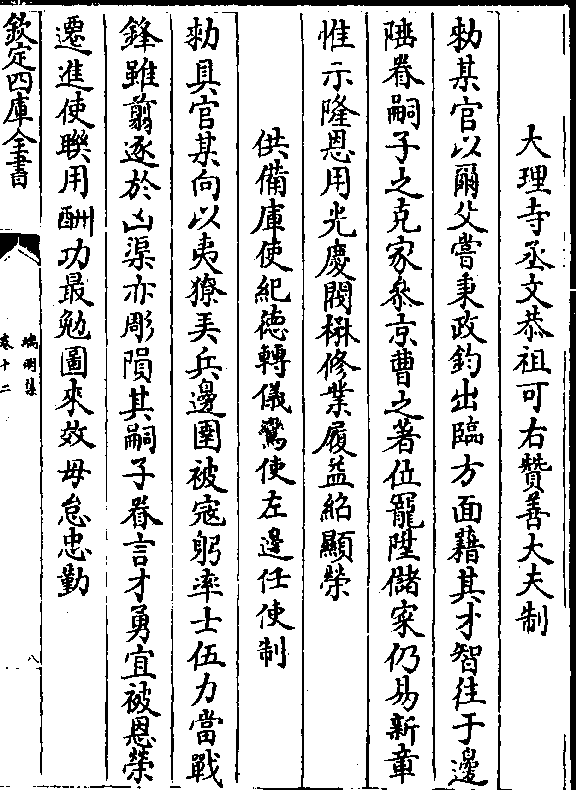 大理寺丞文恭祖可右贊善大夫制
勅某官以爾父嘗秉政鈞出臨方面藉其才智往于邊
陲眷嗣子之克家叅京曹之著伍寵陞儲寀仍易新章
惟示隆恩用光慶閥楙修業履益紹顯榮
供備庫使紀徳轉儀鸞使左邊任使制
勅具官某向以夷獠弄兵邊圉被寇躬率士伍力當戰
鋒雖翦逐於凶渠亦彫隕其嗣子眷言才勇宜被恩榮
遷進使聨用酬功最勉圖來效毋怠忠勤
欽定四庫全書
端明集
卷十二
八